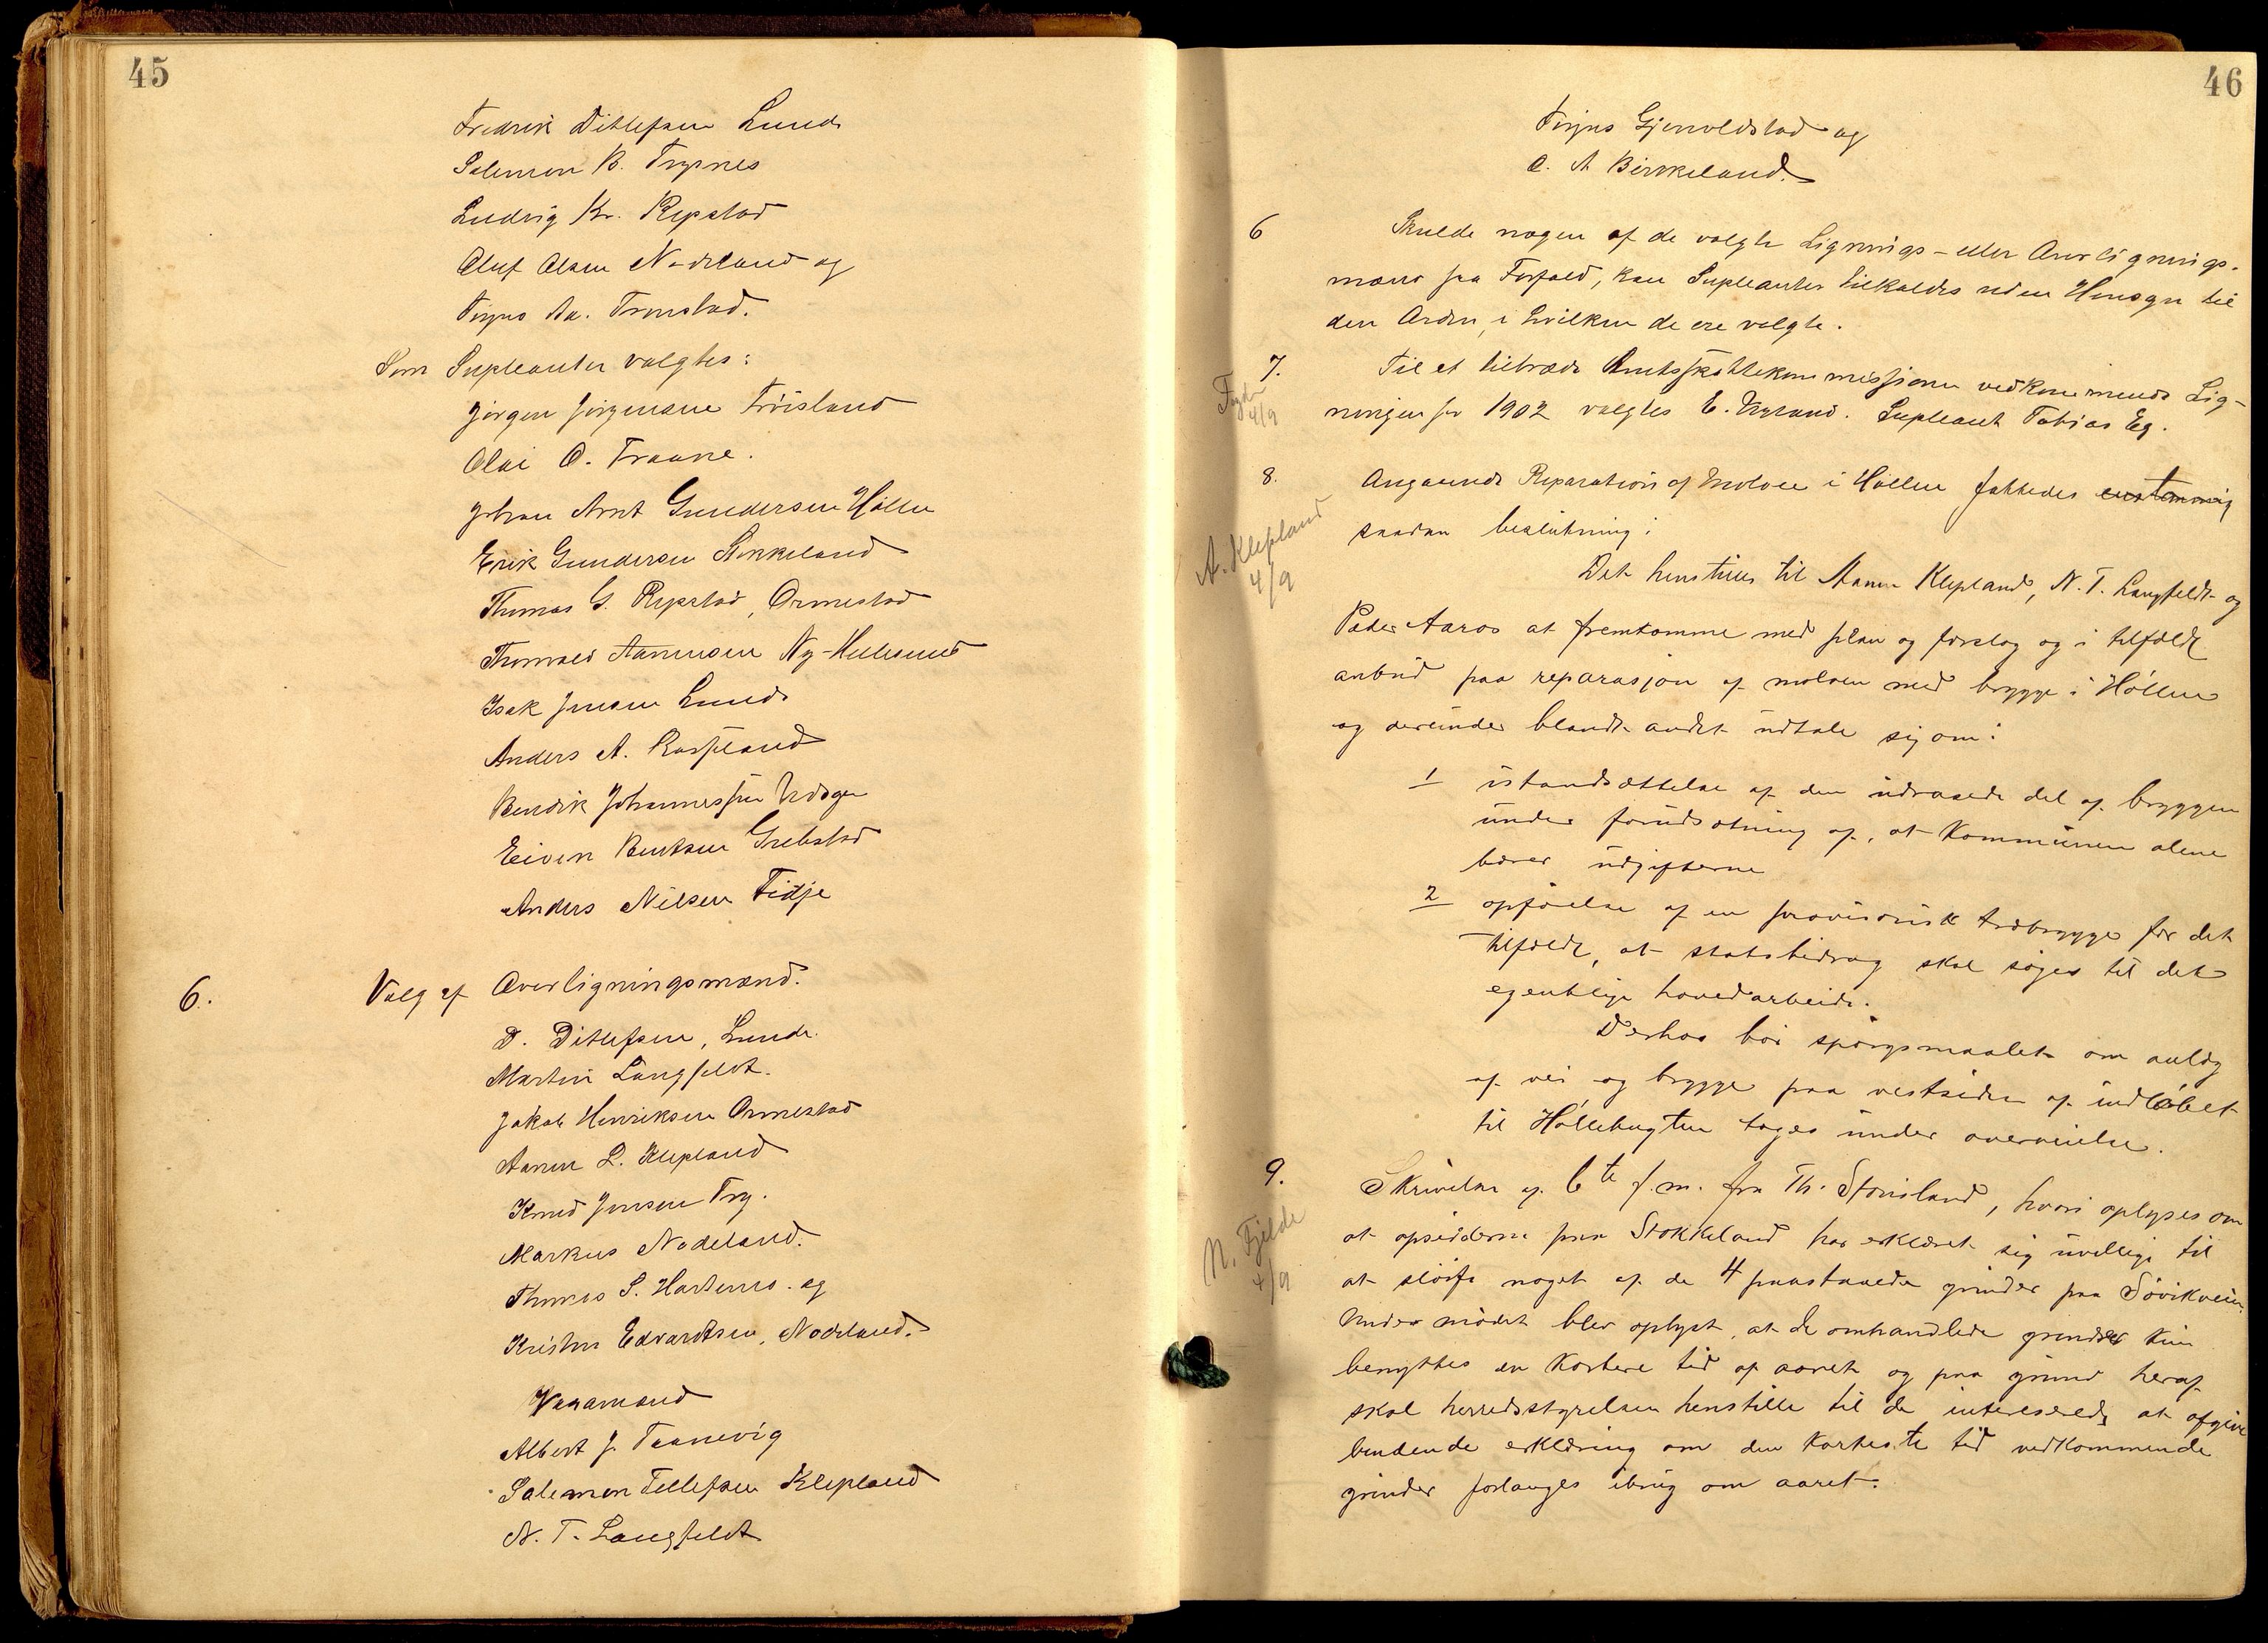 45
Fredrik Ditlefsen Lunde
Salemon B. Trysnes
Ludvig Kr. Repstad
Oluf Olsen Nodeland og
Tirjus Aa. Tronstad.
Som Supleanter valgtes:
Jörgen Jörgensen Fröisland
Olai O. Fraane.
Johan Arnt Gundersen Höllen
Erik Gundersen Stokkeland
Thomas G. Repstad, Ormestad
Thorvald Aanensen Ny-Hellesund
Isak Jensen Lunde
Anders A.
Bendik Johannessen
Eivin Berntsen Grebstad
Anders Nilsen Fidje
6.
Valg af Overligningsmænd.
D. Ditlefsen, Lunde.
Martin Langfeldt.
Jakob Henriksen Ormestad
Aanen L. Klepland
Knud Jensen Try.
Markus Nodeland.
Thomas S. Hartenes. og
Kristen Edvardsen, Nodeland.
Varamænd
Albert J. Taanevig
Salemon Tellefsen Klepland
N. T. Langfeldt
46
Tirjus Gjervoldstad og
O. A Birkeland.
6
Skulde nogen af de valgte Lignings- eller Overlignings-
mænd faa Forfald, kan Supleanter tilkaldes uden Hensyn til
den Orden, i hvilken de ere valgte.
7.
Til at tiltræde Amtsskattekommissionen vedkommende Lig-
ningen for 1902 valgtes E. Supleant Tobias Eg.
4/9
8.
Angaaende Reparation af Moloen i Höllen fattedes enstemmig
saadan beslutning:
A. Klepland
4/9
Det henstilles til Aanen Klepland, N. T. Langfeldt og
Peder Aaros at fremkomme med plan og forslag og i tilfælde
anbud paa reparasjon af moloen med brygge i Höllen
og derunder blandt andet udtale sig om:
1 istandsættelse af den udrasede del af bryggen
under forudsætning af, at Kommunen alene
bærer udgifterne
2 opförelse af en provisorisk træbrygge for det
tilfælde, at statsbidrag skal söges til det
egentlige hovedarbeide.
Derhos bör spörgsmaalet om anlæg
af vei og brygge paa vestsiden af indlöbet
til Höllebugten tages under overveielse.
9.
Skrivelse af 6te f. m. fra Th. Stousland, hvori oplyses om
at opsidderne paa Stokkeland har erklæret sig uvillige til
at slöife noget af de 4 paastaaede grinder paa Søvikveien.
N. Fjelde
4/9
Under mödet blev oplyst, at de omhandlede grinder kun
benyttes en kortere tid af aaret og paa grund heraf
skal herredsstyrelsen henstille til de interesserede at afgive
bindende erklæring om den korteste tid vedkommende
grinder forlanges ibrug om aaret.